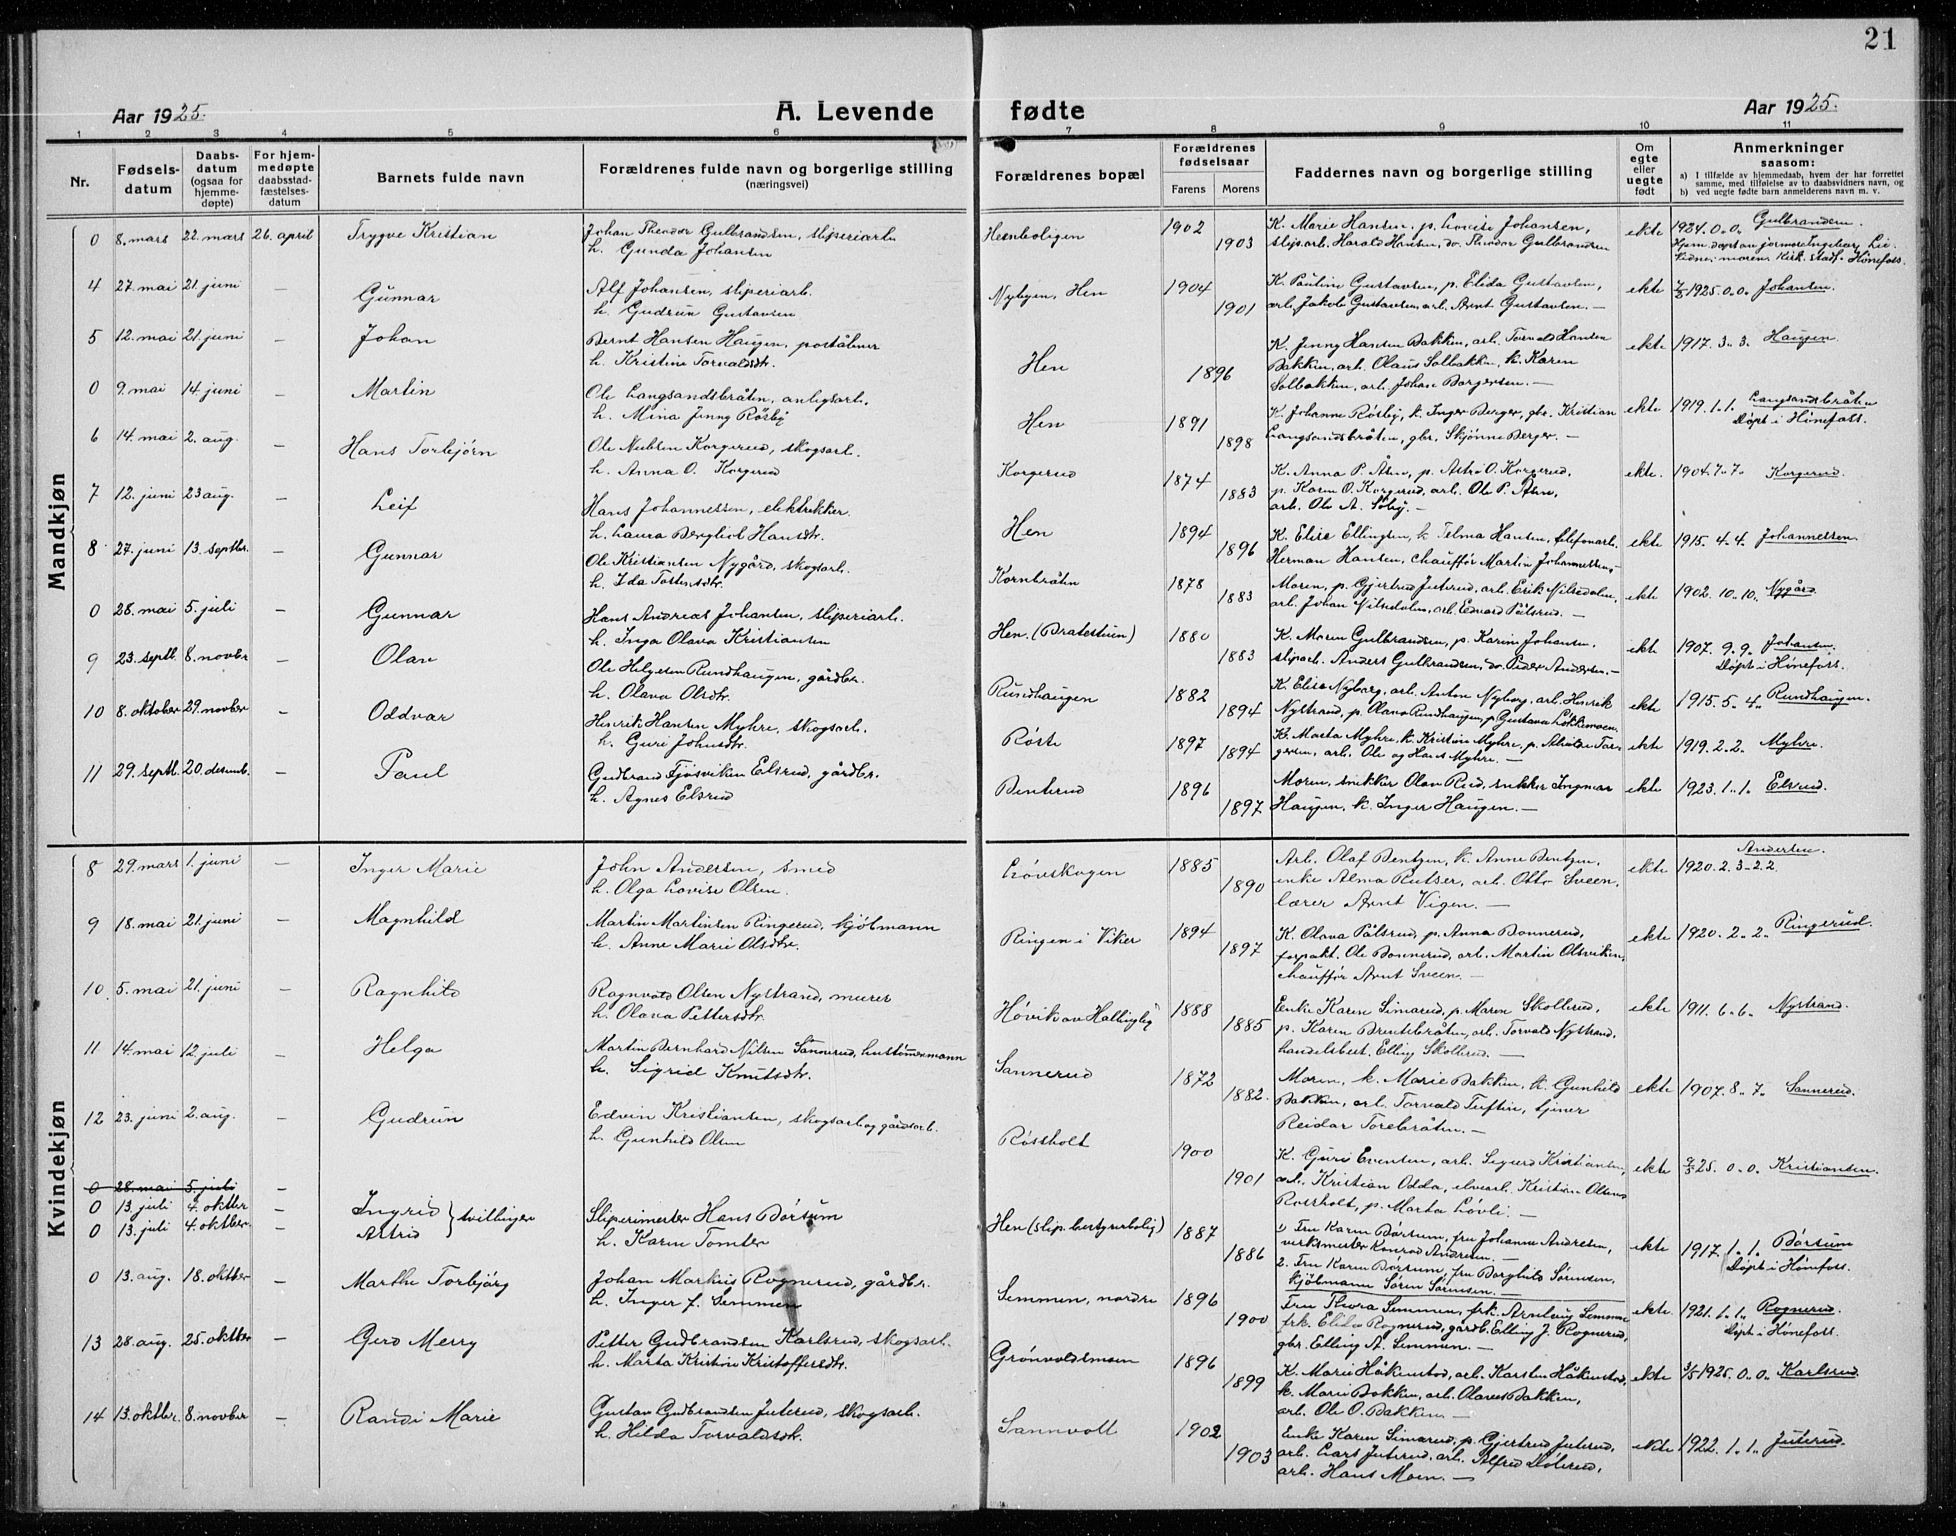 21
Aar 1925.
A. Levende fødte
Aar 1925.
1 2 3 4 5 6 7 8 9 10 11
Nr.
Fødsels-
datum
Daabs-
datum
(ogsaa for
hjemme-
døpte)
For hjem-
medøpte
daabsstad-
fæstelses-
datum
Barnets fulde navn
Forældrenes fulde navn og borgerlige stilling
(næringsvei)
Forældrenes bopæl
Forældrenes
fødselsaar
Farens Morens
Faddernes navn og borgerlige stilling
Om
egte
eller
uegte
født
Anmerkninger
saasom:
a) I tilfælde av hjemmedaab, hvem der har forrettet
samme, med tilføielse av to daabsvidners navn, og
b) ved uegte fødte barn anmelderens navn m. v.
Mandkjøn
0 8. mars 22. mars 26. april Trygve Kristian
Johan Theodor Gulbrandsen, sliperiarb.
h. Gunda Johansen
Henboligen 1902 1903
K. Marie Hansen, p. Lovise Johansen,
sliparb. Harald Hansen, do. Theodor Gulbrandsen
ekte 1924. 0. 0. Gulbrandsen.
4 27. mai 21. juni — Gunnar
Alf Johansen, sliperiarb.
h. Gudrun Gustavsen
Nybyen, Hen 1904 1901
K. Pauline Gustavsen, p. Elida Gustavsen,
arb. Jakob Gustavsen, arb. Arnt Gustavsen. —
ekte 1925. 0. 0. Johansen.
5 12. mai 21. juni — Johan
Bernt Hansen Haugen, poståbner
h. Kristine Torvaldsdtr.
Hen 1896
K. Jenny Hansen Bakken, arb. Torvald Hansen
Bakken, arb. Olaus Solbakken, k. Karen
Solbakken, arb. Johan Borgersen. —
ekte 1917. 3. 3. Haugen
0 9. mai 14. juni — Martin
Ole Langsandsbråten, anlegsarb.
h. Mina Jenny Røsby
Hen 1891 1898
K. Johanne Røsby, k. Inger Berger, gbr. Kristian
Langsandsbråten, gbr. Skjønne Berger. —
ekte 1919. 1. 1. Langsandsbråten
Døpt i Hønefoss.
6 14. mai 2. aug. — Hans Torbjørn
Ole Nielsen Korgerud, skogsarb.
h. Anna O. Korgerud
Korgerud 1874 1883
K. Anna P. Åsen, p. Astrid O. Korgerud,
p. Karen O. Korgerud, arb. Ole P. Åsen,
arb. Ole A. Søby. —
ekte. 1904. 7. 7. Korgerud
7 12. juni 23 aug. — Leif
Hans Johannessen, elektrikker
h. Laura Bergliot Hansdtr.
Hen 1894 1896
K. Elise Ellingsen, k. Telma Hansen, telefonarb.
Herman Hansen, chauffør Martin Johannessen, —
ekte 1915. 4. 4. Johannessen
8 27. juni 13. septbr. — Gunnar
Ole Kristiansen Nygård, skogsarb.
h. Ida Tostensdtr.
Kornbråten 1878 1883
Moren, p. Gjertrud Juterud, arb. Erik Nilsedalen,
arb. Johan Nilsedalen, arb. Edvard Pålsrud. —
ekte 1902. 10. 10. Nygård
0 28. mai 5. juli — Gunnar
Hans Andreas Johansen, sliperiarb.
h. Inga Olava Kristiansen
Hen. (Bratestuen) 1880 1883
K. Maren Gulbrandsen, p. Karin Johansen,
sliparb. Anders Gulbrandsen, do. Peder Andersen. —
ekte 1907. 9. 9. Johansen.
Døpt i Hønefoss.
9 23. septb. 8. novbr — Olav
Ole Helgesen Rundhaugen, gårdbr.
h. Olava Olsdtr.
Rundhaugen 1882 1894
K. Elise Nyborg, arb. Anton Nyborg, arb. Henrik
Nystrand, p. Olava Rundhaugen, p. Gustava Løkkemoen
ekte 1915. 5. 4. Rundhaugen.
10 8. oktober 29. novber — Oddvar
Henrik Hansen Myhre, skogsarb.
h. Guri Johnsdtr.
Røste 1897 1894
ekte 1919. 2. 2. Myhre.
11 29. septb. 20. desemb. — Paul
Gudbrand Fjøsviken Elsrud, gårdbr.
h. Agnes Elsrud
Benterud 1896 1897
Moren, snekker Olav Rud, snekker Ingmar
Haugen, k. Inger Haugen. —
ekte 1923. 1. 1. Elsrud.
Kvindekjøn
8 29. mars 1. juni — Inger Marie
John Andersen, smed
h. Olga Lovise Olsen.
Løvskogen 1885 1890
Arb. Olaf Bentzen, k. Anne Bentzen,
enke Alma Rutser, arb. Otto Sveen,
lærer Arnt Vigen. —
ekte 1920. 2. 3. 22 Andersen.
9 18. mai 21. juni — Magnhild
Martin Martinsen Ringerud, kjøbmann
h. Anne Marie Olsdtr.
Ringen i Viker 1894 1897
K. Olava Pålsrud, p. Anna Bonnerud,
forpakt. Ole Bonnerud, arb. Martin Olsviken,
chauffør Arnt Sveen. —
ekte 1920. 2. 2. Ringerud.
10 5. mai 21. juni — Ragnhild
Ragnvald Olsen Nystrand, murer
h. Olava Pettersdtr.
Høvik av Hallingby 1888 1885
Enke Karen Simarud, p. Maren Skollerud,
p. Karen Brentebråten, arb. Torvald Nystrand,
handelsbest. Elling Skollerud. —
ekte 1911. 6. 6. Nystrand.
11 14. mai 12. juli — Helga
Martin Bernhard Nilsen Sannerud, hustømmermann
h. Sigrid Knutsdtr.
Sannerud 1872 1882
Moren, k. Marie Bakken, k. Gunhild
Bakken, arb. Torvald Tuftin, tjener
Reidar Torebråten. —
ekte 1907. 8. 7. Sannerud.
12 23. juni 2. aug. — Gudrun
Edvin Kristiansen, skogsarb. og gårdsarb.
h. Gunhild Olsen
Røssholt 1900 1901
K. Guri Evensen, arb. Sigurd Kristiansen,
arb. Kristian Odda, elvearb. Kristian Olsen
Rossholt, p. Marta Løvli. —
ekte 25. 0. 0. Kristiansen.
0 28. mai 5. juli —
0 13. juli 4. oktber — Ingrid
0 13. juli 4. oktber. — Astrid } tvillinger
Sliperimester Hans Børsum
h. Karen Tomter
Hen (slip. bestyrerbolig) 1887 1886
1) Fru Karen Børsum, fru Johanne Andresen,
verksmester Konrad Andresen. —
2. Fru Karen Børsum, fru Borghild Sørensen,
kjøbmann Søren Sørensen. —
ekte 1917. 1. 1. Børsum
Døpt i Hønefoss.
0 13. aug. 18. oktber — Marthe Torbjørg
Johan Markus Rognerud, gårdbr.
h. Inger J. Semmen
Semmen, nordre 1896 1900
Fru Thora Semmen, frk. Arnlaug Semmen
frk. Elida Rognerud, gårdb. Elling J. Rognerud,
gbr. Elling A. Semmen. —
ekte 1921. 1. 1. Rognerud.
Døpt i Hønefoss.
13 28. aug. 25. oktber — Gerd Merry
Petter Gudbrandsen Karlsrud, skogsarb.
h. Marta Kristine Kristoffersdtr.
Grønvoldsmoen 1896 1899
K. Marie Håkenstad, arb. Karsten Håkenstad,
k. Marie Bakken, arb. Olaves Bakken,
arb. Ole O. Bakken —
ekte 1925. 0. 0. Karlsrud
14 13. oktbr. 8. novber — Randi Marie
Gustav Gudbrandsen Juterud, skogsarb.
h. Hilda Torvaldsdtr.
Sannvoll 1902 1903
Enke Karen Simarud, p. Gjertrud Juterud,
arb. Lars Juterud, arb. Alfred Dølerud,
arb. Hans Moen. —
ekte 1922. 1. 1. Juterud.